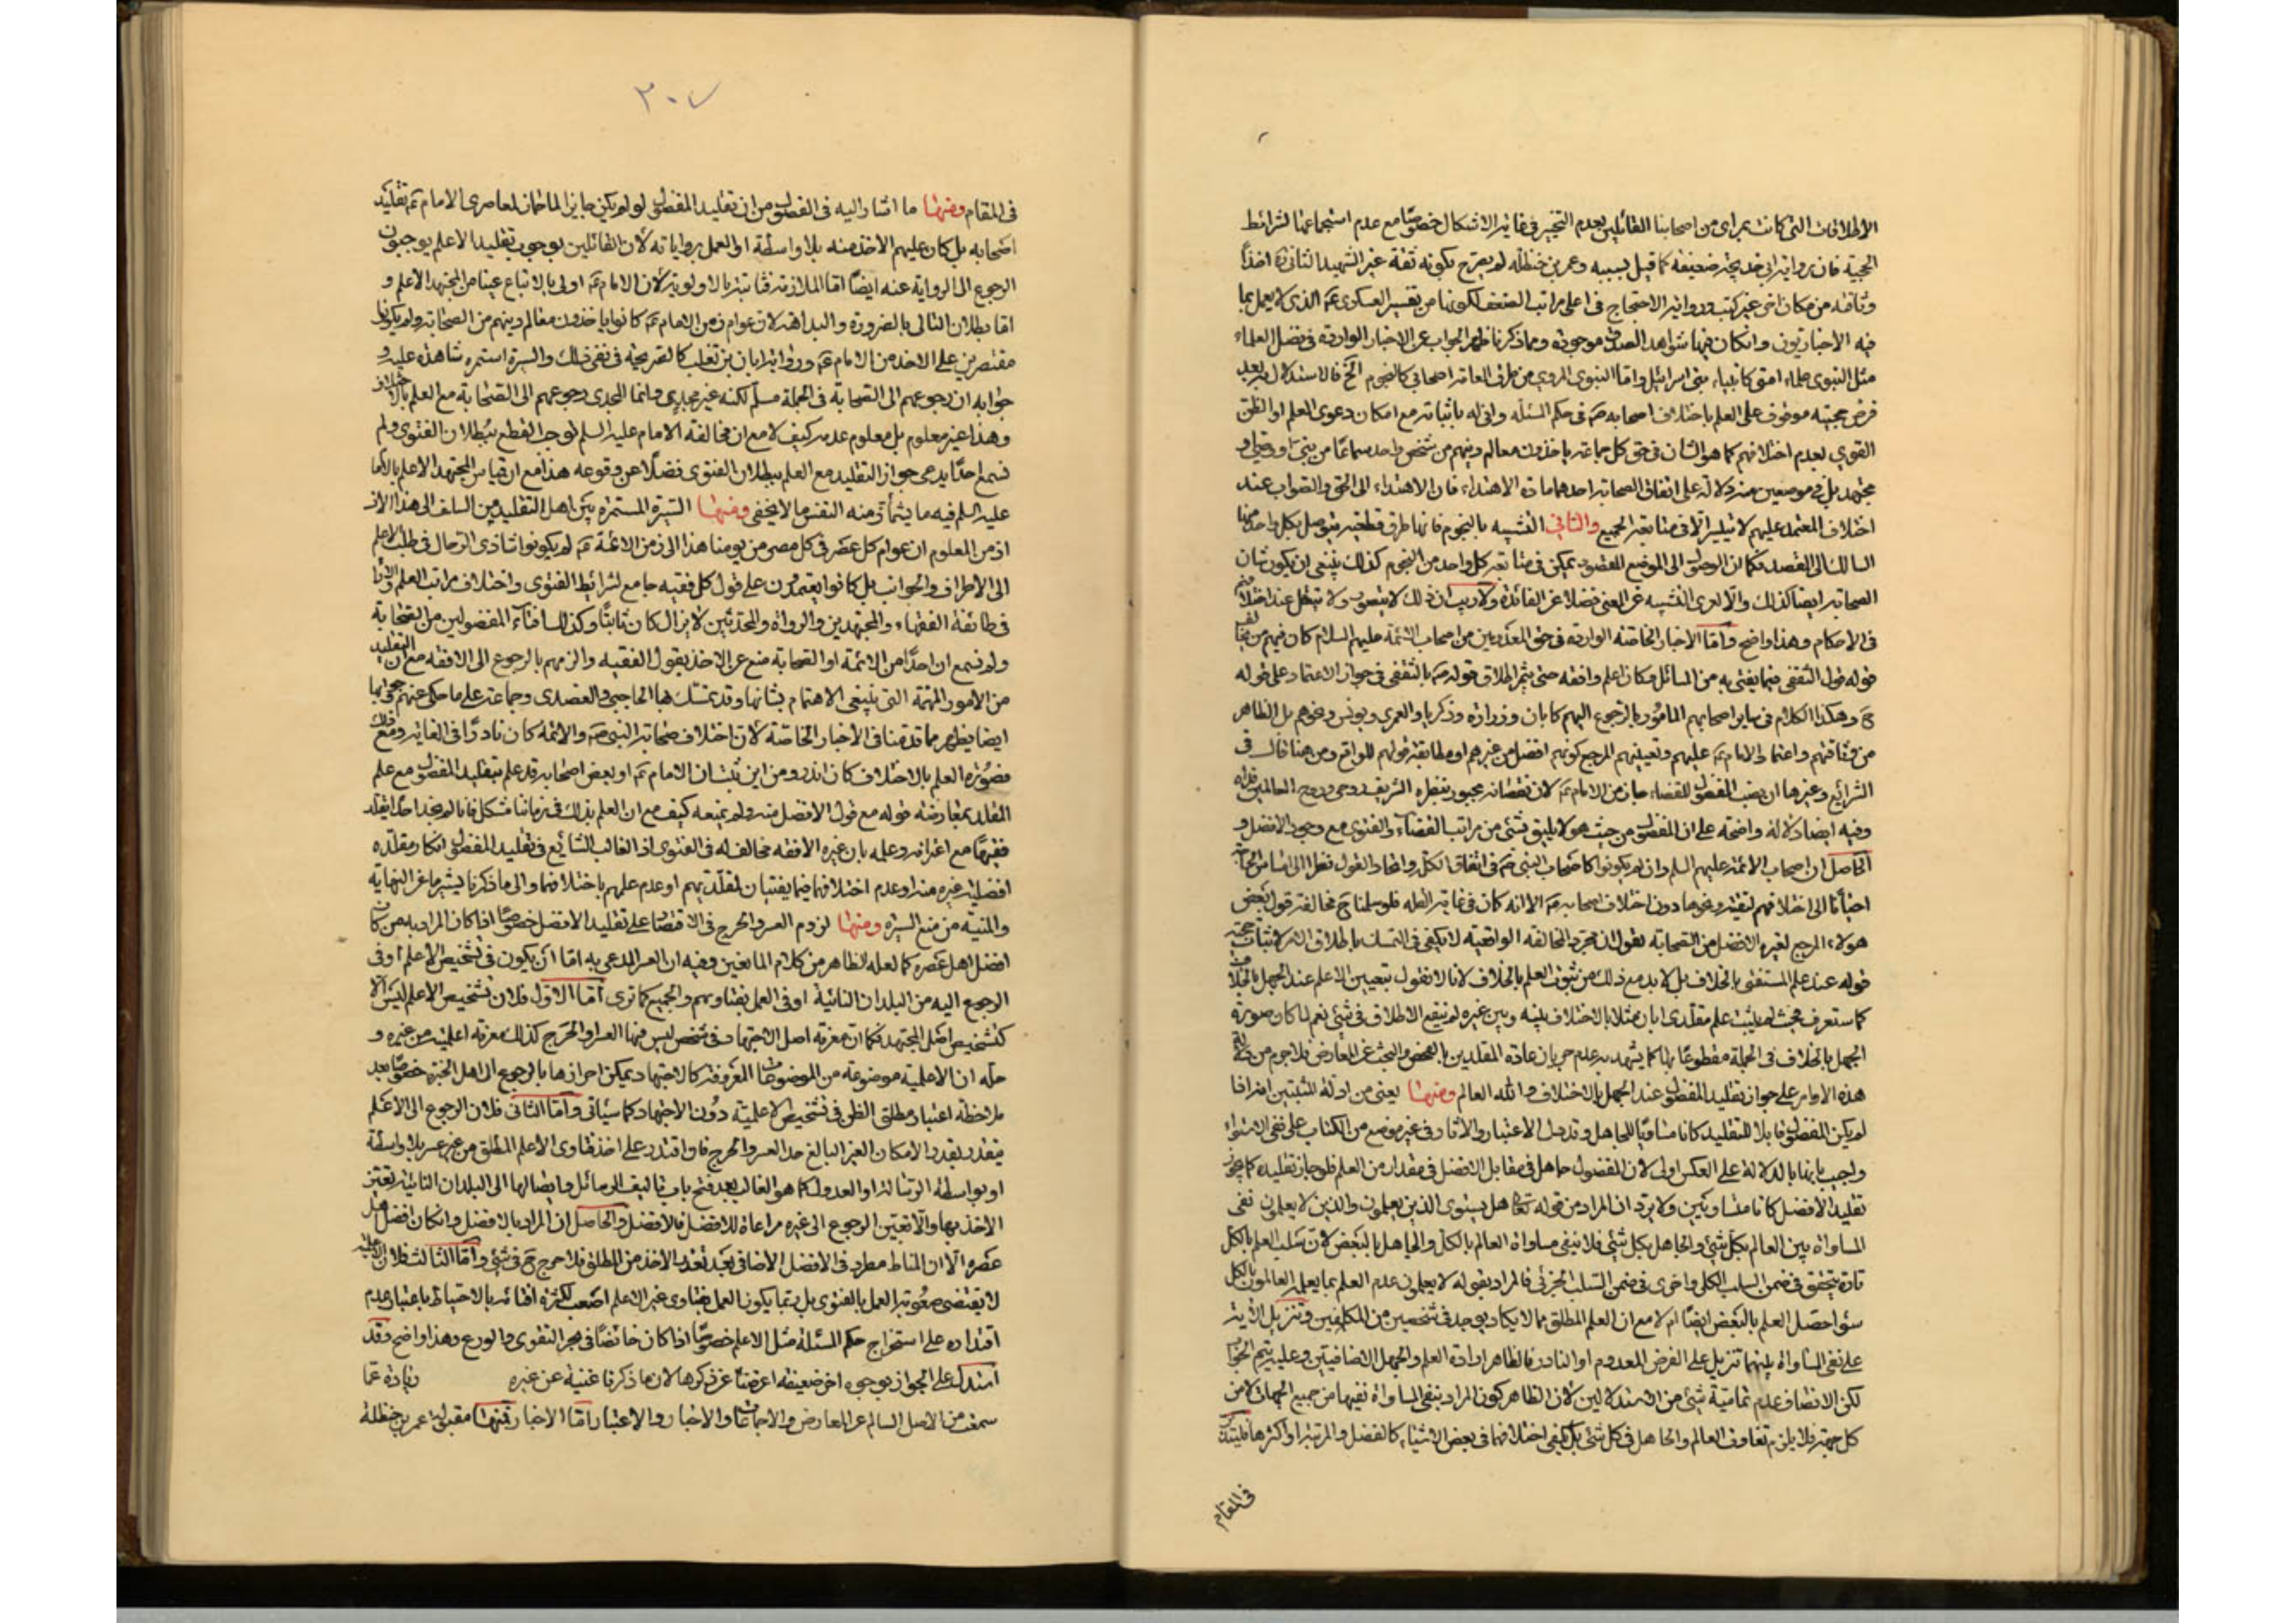 الاطلاقات التی کانت بمرای من اصحابنا القائلین بعدم التخییر فی غایة الاشکال خصوصًا مع عدم استجماعها لشرائط
الحجیة فان روایة ابی خدیجة ضعیفة کما قیل بسببه وعمر بن حنظلة لم یصرح بکونه ثقة غیر الشهید الثانی اخذًا
وثاقته من مکان اخر غیر کتب وروایة الاحتجاج فی اعلی مراتب الضعف لکونها من تفسیر العسکری الذی لا یعمل بما
فیه الاخباریون وانکان فیها شواهد الصدق موجودة ومما ذکرنا ظهر الجواب عن الاخبار الواردة فی فضل العلماء
مثل النبوی علماء امتی کانبیاء بنی اسرائیل واما النبوی المروی من طرق العامة اصحابی کالنجوم الخ فالاستدلال به بعد
فرض حجیته موقوف علی العلم باختلاف اصحابه فی حکم المسئله وانی له باثباته مع امکان دعوی العلم او الظن
القوی بعدم اختلافهم کما هو الشان فی حق کل جماعة یاخذون معالم دینهم من شخص واحد سماعًا من نبی او وصی او
مجتهد بل فی موضعین منه دلالة علی اتفاق الصحابة احدهما مادة الاهتداء فان الاهتداء الی الحق والصواب عند
اختلاف المعتمد علیهم لا یتیسر الا فی متابعة الجمیع والثانی التشبیه بالنجوم فانها طرق قطعیة یتوصل بکل واحد منها
السالک الی القصد فکما ان الوصول الی الموضع المقصود یمکن فی متابعة کل واحد من النجوم کذلک ینبغی ان یکون شان
الصحابة ایضا کذلک والا لعری التشبیه عن المعنی فضلا عن الفائدة ولا ریب ان ذلک لا یتصور ولا یتعقل عند اختلافهم
فی الاحکام وهذا واضح واما الاخبار الخاصة الواردة فی حق المعدودین من اصحاب الائمة علیهم السلام کان فیهم من یخالف
قوله قول الثقفی فیما یفتی به من المسائل وکان اعلم وافقه حتی یثمر اطلاق قوله بالثقفی فی جواز الاعتماد علی قوله
ح وهکذا الکلام فی سایر اصحابهم المامور بالرجوع الیهم کابان وزراره وزکریا والعمری ویونس ونحوهم بل الظاهر
من وثاقتهم واعتماد الامام علیهم وتعیینهم المرجع کونهم افضل من غیرهم او مطابقة قولهم للواقع ومن هنا قال فی
الشرائع وغیرها ان نصب المفضول للقضاء جاز من الامام لان نقصانه مجبور بنظره الشریف روحی وروح العالمین فداه
وفیه ایضا دلالة واضحة علی ان المفضول من حیث هو لا یلیق بشئ من مراتب القضاء والفتوی مع وجود الافضل و
الحاصل ان اصحاب الائمة علیهم السلم وان لم یکونوا کاصحاب النبی فی اتفاق الکل واتحاد القول نظرا الی
احیانًا الی اختلافهم تقیة ونحوها دون اختلاف اصحابه الا انه کان فی غایة القله فلو سلمنا ح مخالفة قول بعض
هولاء المرجع لغیره الافضل من الصحابة نقول ان مجرد المخالفة الواقعیة لا یکفی فی التمسک باطلاق الامر لاثبات حجیة
قوله عند علم المستفتی بالخلاف بل لا بد مع ذلک من ثبوت العلم بالخلاف لانا لا نقول بتعیین الاعلم عند الجهل بالخلاف
کما ستعرف فحیث لم یثبت علم مقلدی ابان مثلا بالاختلاف بینه وبین غیره لم ینفع الاطلاق فی شئ نعم لما کان صورة
الجهل بالخلاف فی الجملة مقطوعًا بها کما یشهد به عدم جریان عادة المقلدین بالفحص والبحث عن المعارض فلا جرم من دلالة
هذه الاوامر علی جواز تقلید المفضول عند الجهل بالاختلاف والله العالم ومنها یعنی من ادلة المثبتین
لم یکن المفضول قابلا للتقلید کانا مساویًا للجاهل وقد دل الاعتبار والاثار فی غیر موضع من الکتاب علی نفی الاستواء
واجیب بانها بالدلالة علی العکس اولی لان المفضول جاهل فی مقابل الافضل فی مقدار من العلم فلو جاز تقلیده کما یجوز
تقلید الافضل کانا متساویین ولا یرد ان المراد من قوله تعالی هل یستوی الذین یعلمون والذین لا یعلمون نفی
المساواة بین العالم بکل شئ والجاهل بکل شئ فلا ینفی مساواة العالم بالکل والجاهل بالبعض لان سلب العلم بالکل
تارة یتحقق فی ضمن السلب الکلی واخری فی ضمن السلب الجزئی فالمراد بقوله لا یعلمون عدم العلم بما یعلمه العالمون بالکل
سواء حصل العلم بالبعض ایضًا ام لا مع ان العلم المطلق مما لا یکاد یوجد فی شخصین من المکلفین وتنزیل الایة
علی نفی المساواة بینهما تنزیل علی الفرض المعدوم او النادر فالظاهر ارادة العلم والجهل الاضافیین وعلیه یتم الجواب
لکن الانصاف عدم تمامیة شئ من الاستدلالین لان الظاهر کون المراد بنفی المساواة نفیها من جمیع الجهات لا من
کل جهة فلا یلزم تفاوت العالم والجاهل فی کل شئ بل یکفی اختلافهما فی بعض الاشیاء کالفضل والمرتبة او اکثرها
فی المقام
۲۰۷
فی المقام ومنها ما اشار الیه فی الفصول من ان تقلید المفضول لو لم یکن جایزا لما جاز لمعاصری الامام تقلید
اصحابه بل کان علیهم الاخذ منه بلا واسطة او العمل بروایاته لان القائلین بوجوب تقلید الاعلم یوجبون
الرجوع الی الروایة عنه ایضًا اما الملازمة فثابتة بالاولویة لان الامام اولی بالاتباع عینا من المجتهد الاعلم و
اما بطلان التالی بالضرورة والبداهة لان عوام زمن الامام کانوا یاخذون معالم دینهم من الصحابة ولم یکونوا
مقتصرین علی الاخذ من الامام وروایة ابان بن تغلب کالصریحة فی نفی ذلک والسیرة استمره شاهدة علیه و
جوابه ان رجوعهم الی الصحابة فی الجملة مسلم لکنه غیر مجدی وانما المجدی رجوعهم الی الصحابة مع العلم بالاختلاف
وهذا غیر معلوم بل معلوم عدمه کیف لا مع ان مخالفة الامام علیه السلم توجب القطع ببطلان الفتوی ولم
نسمع احدًا یدعی جواز التقلید مع العلم ببطلان الفتوی فضلًا عن وقوعه هذا مع ان قیاس المجتهد الاعلم بالامام
علیه السلم فیه ما یشمأز منه النفس ما لا یخفی ومنها السیرة المستمرة بین اهل التقلید من السلف الی هذا الان
اذ من المعلوم ان عوام کل عصر فی کل مصر من یومنا هذا الی زمن الائمة لم یکونوا شادی الرحال فی طلب الاعلم
الی الاطراف والجوانب بل کانوا یعتمدون علی قول کل فقیه جامع لشرائط الفتوی واختلاف مراتب العلم
فی طائفة الفقهاء والمجتهدین والرواة والمحدثین لا یزال کان ثابتًا وکذلک افتاء المفضولین من الصحابة
ولم نسمع ان احدًا من الائمة او الصحابة منع عن الاخذ بقول الفقیه والزمهم بالرجوع الی الافقه مع ان التقلید
من الامور المهمة التی ینبغی الاهتمام بشانها وقد تمسک بها الحاجبی والعضدی وجماعة علی ما حکی عنهم وجوابها
ایضا یظهر مما قدمنا فی الاخبار الخاصة لان اختلاف صحابة النبی والائمة کان نادرًا فی الغایة ومع ذلک
فصورة العلم بالاختلاف کان اندر ومن این ثبت ان الامام او بعض اصحابه قد علم بتقلید المفضول مع علم
المقلد بمعارضة قوله مع قول الافضل منه ولم یمنعه کیف مع ان العلم بذلک فی زماننا مشکل فانا لم نجد احدًا یقلد
فقیهًا مع اعترافه وعلمه بان غیره الافقه مخالف له فی الفتوی اذ الغالب الشایع فی تقلید المفضول انکار مقلده
افضلیة غیره منه او عدم اختلافهما فیما یفتیان لمقلدیهم او عدم علمهم باختلافهما والی ما ذکرنا یشیر ما عن النهایة
والمنیة من منع السیرة ومنها لزوم العسر والحرج فی الاقتصار علی تقلید الافضل خصوصًا اذا کان المراد به من کان
افضل اهل عصره کما لعله الظاهر من کلام المانعین وفیه ان العسر المدعی به اما ان یکون فی تشخیص الاعلم او فی
الرجوع الیه من البلدان النائیة او فی العمل بفتاویهم والجمیع کما تری اما الاول فلان تشخیص الاعلم لیس الا
کتشخیص اصل المجتهد فکما ان معرفة اصل الاجتهاد فی شخص لیس فیها العسر والحرج کذلک معرفة اعلمیته من غیره و
حله ان الاعلمیة موضوعة من الموضوعات المعروفة کالاجتهاد یمکن احرازها بالرجوع الی اهل الخبرة خصوصًا بعد
ملاحظة اعتبار مطلق الظن فی تشخیص الاعلمیة دون الاجتهاد کما سیأتی واما الثانی فلان الرجوع الی الاعلم
یتقدر بقدر الامکان الغیر البالغ حد العسر والحرج فاو اقتدر علی اخذ فتاوی الاعلم المطلق من غیر عسر بلا واسطة
او بواسطة الرسالة او العدول کما هو الغالب بعد فتح باب تالیف الرسائل وایصالها الی البلدان النائیة تعین
الاخذ بها والا تعین الرجوع الی غیره مراعاة للافضل فالافضل والحاصل ان المراد بالافضل وانکان افضل اهل
عصره الا ان المناط مطرد فی الافضل الاضافی بعد تعذر الاخذ من المطلق فلا حرج ح فی شئ واما الثالث فلان الاعلمیة
لا یقتضی صعوبة العمل بالفتوی بل ربما یکون العمل بفتاوی غیر الاعلم اصعب لکثرة افتائه بالاحتیاط باعتبار عدم
اقتداره علی استخراج حکم المسئلة مثل الاعلم خصوصًا اذا کان خائضًا فی بحر التقوی والورع وهذا واضح وقد
استدل علی الجواز بوجوه اخر ضعیفة اعرضنا عن ذکرها لان ما ذکرنا غنیة عن غیره زیادة عما
سمعت من الاصل السالم عن المعارض والاجماعات والاخبار والاعتبار اما الاخبار فمنها مقبولة عمر بن حنظلة